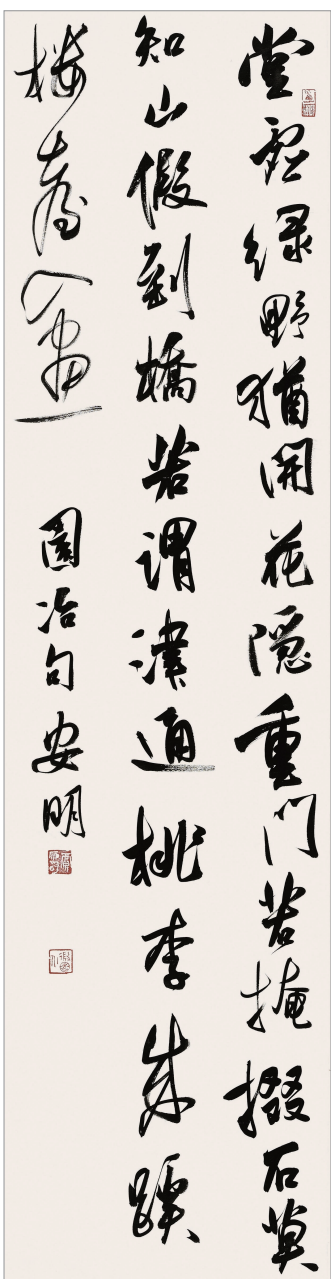 堂虛緑野猶開花隱重門若掩掇石莫
知山假到橋若謂津通桃李成蹊
樓臺入畫
園冶句安明